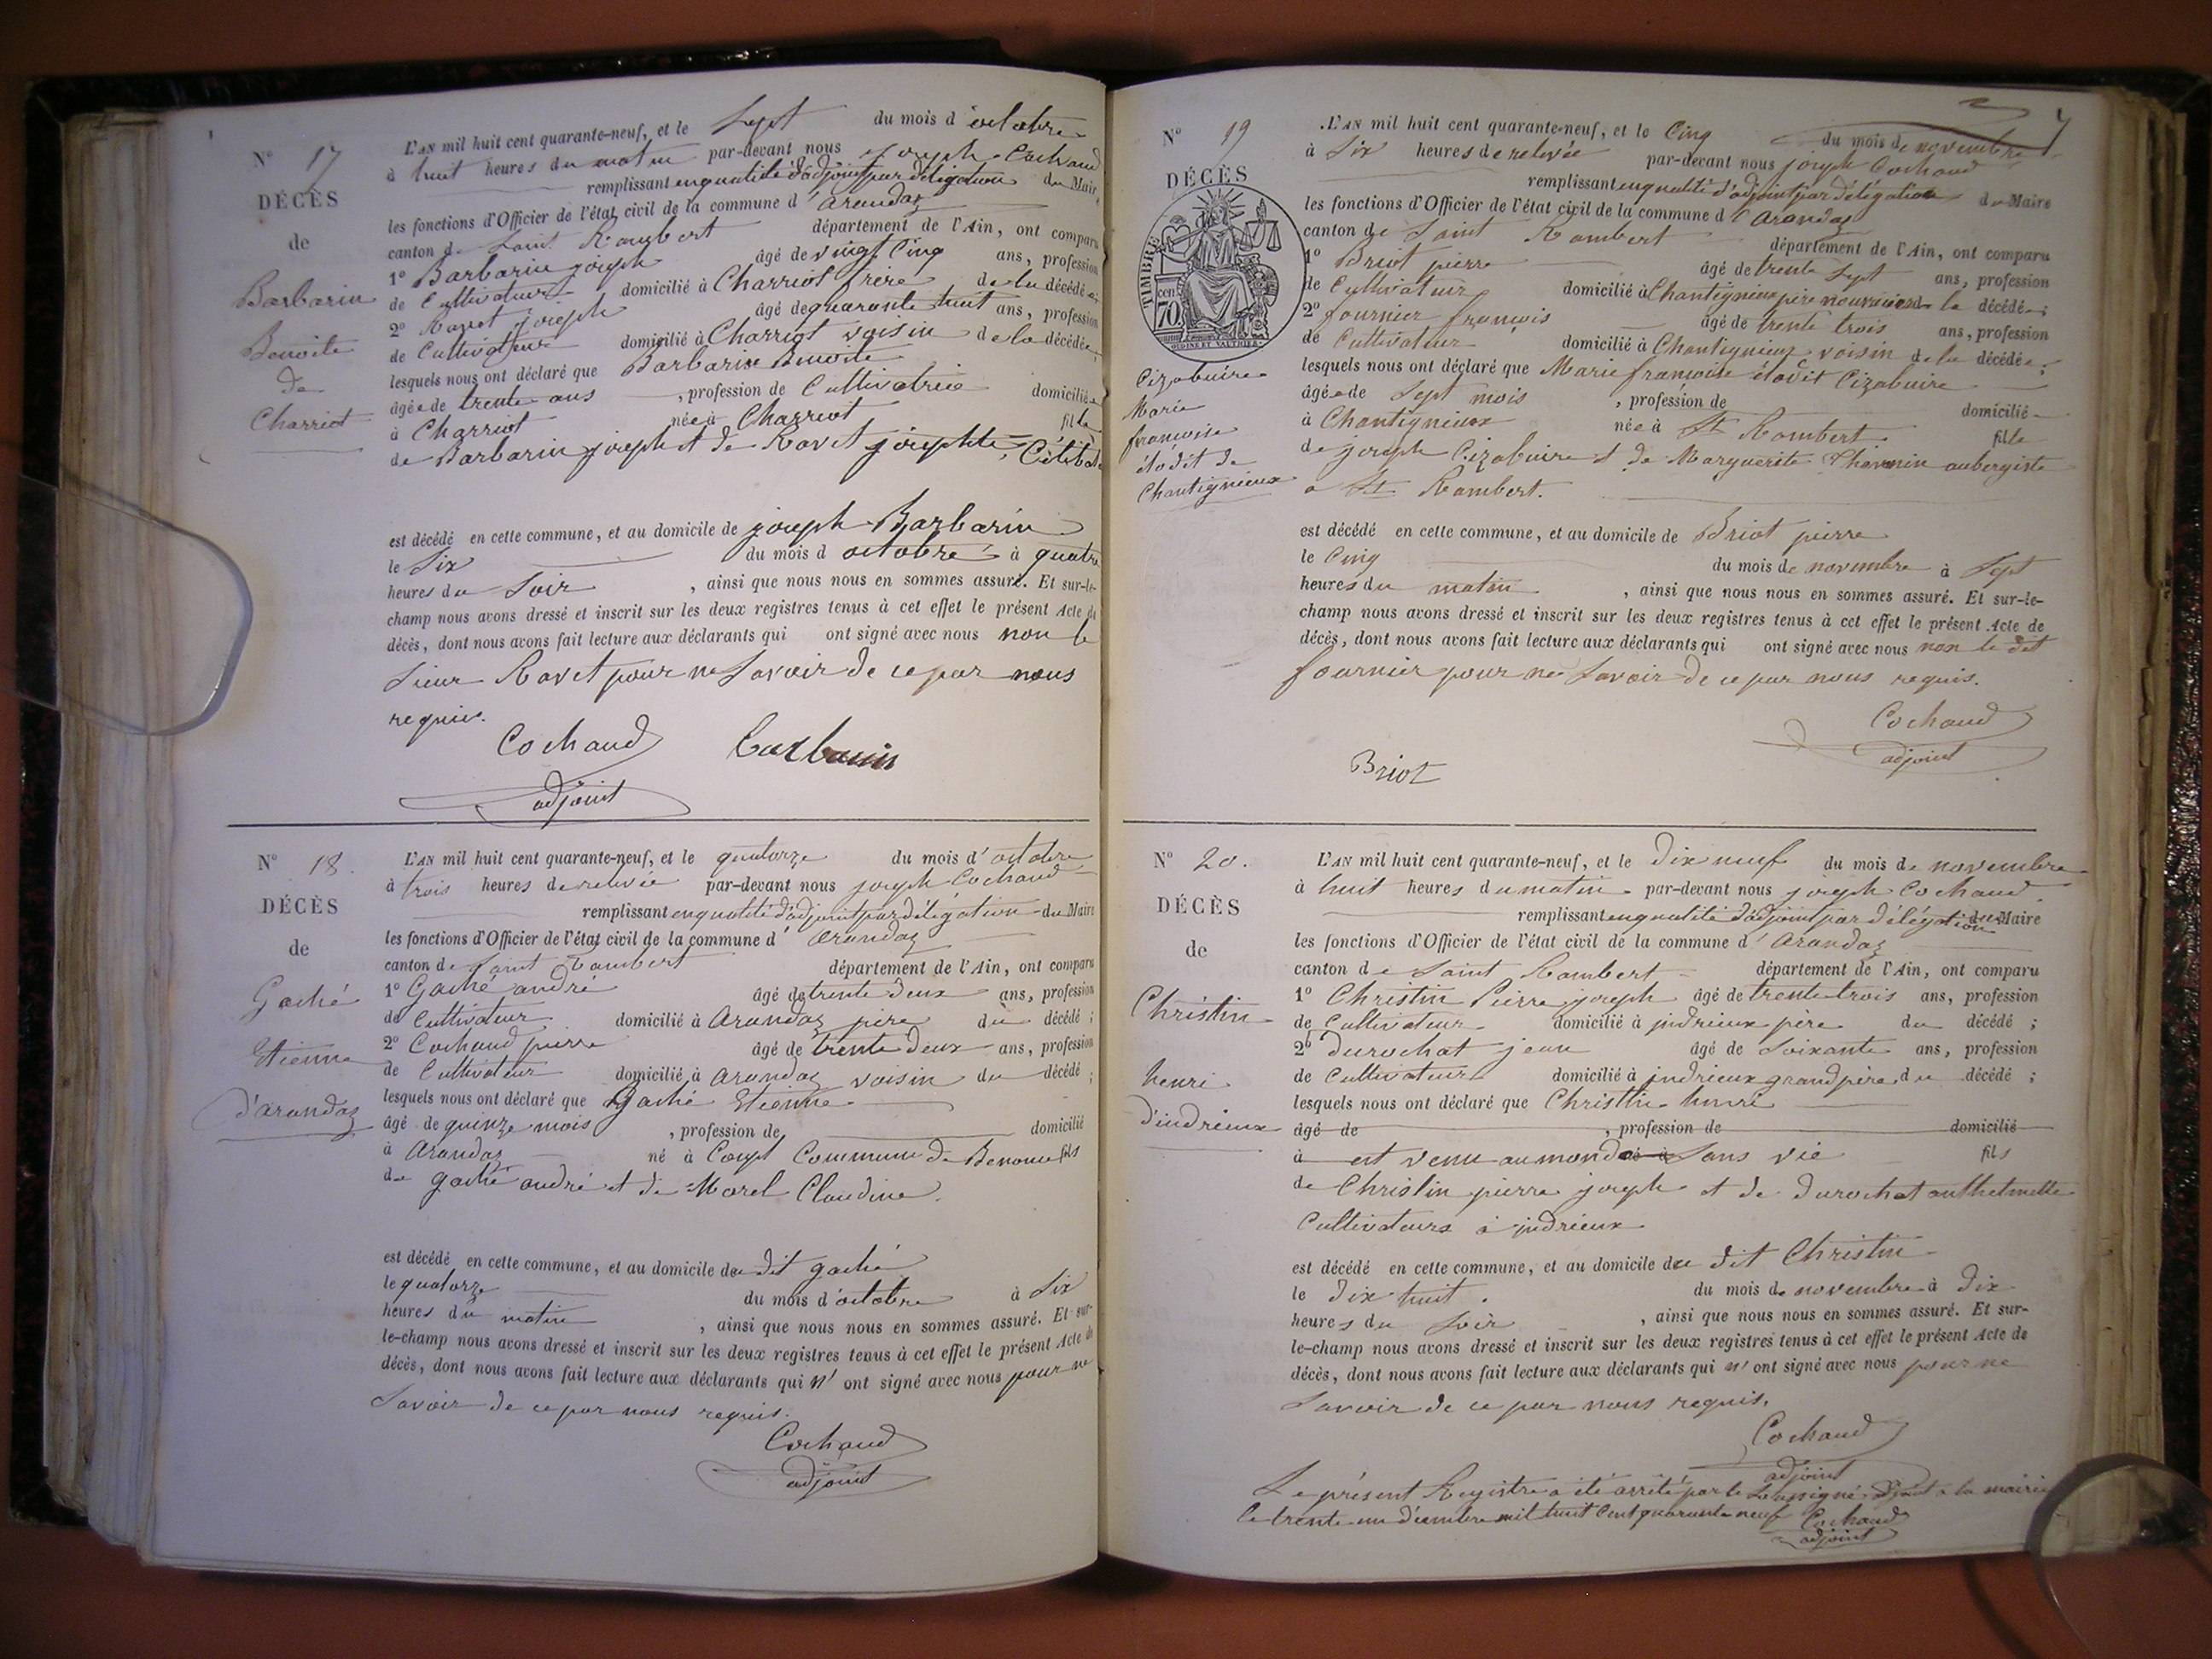 N° 17
DÉCÈS
de
Barbarin
Benoite
de
Charriot
L'AN mil huit cent quarante-neuf, et le Sept du mois d'octobre
à huit heures du matin par-devant nous joseph Cochaud
remplissant en qualité d'adjoint par délégation du Maire
les fonctions d'Officier de l'état civil de la commune d'arandaz
canton de Saint Rambert département de l'Ain, ont comparu
1° Barbarin joseph âgé de vingt Cinq ans, profession
de Cultivateur domicilié à Charriot frère de la décédée;
2° Ravet joseph âgé de quarante huit ans, profession
de Cultivateur domicilié à Charriot voisin de la décédée;
lesquels nous ont déclaré que Barbarin Benoite
âgée de trente ans, profession de Cultivatrice domiciliée
à Charriot née à Charriot fille
de Barbarin joseph et de Ravet josephte,
est décédé en cette commune, et au domicile de joseph Barbarin
le Six du mois d octobre à quatre
heures du Soir, ainsi que nous nous en sommes assuré. Et sur-le-
champ nous avons dressé et inscrit sur les deux registres tenus à cet effet le présent Acte de
décès, dont nous avons fait lecture aux déclarants qui ont signé avec nous non le
Sieur Ravet pour ne Savoir de ce par nous
requis.
Cochaud Barbarin
adjoint
N° 18.
DÉCÈS
de
Gaché
Etienne
d'arandaz
L'AN mil huit cent quarante-neuf, et le quatorze du mois d'octobre
à trois heures de relevée par-devant nous joseph Cochaud
remplissant en qualité d'adjoint par délégation du Maire
les fonctions d'Officier de l'état civil de la commune d'arandaz
canton de Saint Rambert département de l'Ain, ont comparu
1° Gaché andré âgé de trente deux ans, profession
de Cultivateur domicilié à Arandaz père du décédé;
2° Cochaud pierre âgé de trente deux ans, profession
de Cultivateur domicilié à arandaz voisin du décédé;
lesquels nous ont déclaré que Gaché Etienne
âgé de quinze mois, profession de domicilié
à Arandaz né à Commune de fils
de gaché andré et de Morel Claudine.
est décédé en cette commune, et au domicile du dit gaché
le quatorze du mois d'octobre à Six
heures du matin, ainsi que nous nous en sommes assuré. Et sur-
le-champ nous avons dressé et inscrit sur les deux registres tenus à cet effet le présent Acte de
décès, dont nous avons fait lecture aux déclarants qui n' ont signé avec nous pour ne
Savoir de ce par nous requis.
Cochaud
adjoint
7
N° 19
DÉCÈS
TIMBRE
cen
70
Cizabuire
Marie
françoise
Chantignieux
L'AN mil huit cent quarante-neuf, et le Cinq du mois de novembre
à Six heures de relevée par-devant nous joseph Cochaud
remplissant en qualité d'adjoint par délégation du Maire
les fonctions d'Officier de l'état civil de la commune d'Arandaz
canton de Saint Rambert département de l'Ain, ont comparu
1° Briot pierre âgé de trente Sept ans, profession
de Cultivateur domicilié à Chantignieux père nourricier de la décédée;
2° fournier françois âgé de trente trois ans, profession
de Cultivateur domicilié à Chantignieux voisin de la décédée;
lesquels nous ont déclaré que Marie françoise Cizabuire
âgée de Sept mois, profession de domicilié
à Chantignieux née à St Rambert fille
de joseph Cizabuire et de Marguerite Thevenin aubergiste
a St Rambert.
est décédé en cette commune, et au domicile de Briot pierre
le Cinq du mois de novembre à Sept
heures du matin, ainsi que nous nous en sommes assuré. Et sur-le-
champ nous avons dressé et inscrit sur les deux registres tenus à cet effet le présent Acte de
décès, dont nous avons fait lecture aux déclarants qui ont signé avec nous non le dit
fournier pour ne Savoir de ce par nous requis.
Cochaud
adjoint
Briot
N° 20.
DÉCÈS
de
Christin
henri
d'indrieux
L'AN mil huit cent quarante-neuf, et le Dix neuf du mois de novembre
à huit heures du matin par-devant nous joseph Cochaud
remplissant en qualité d'adjoint par délégation du Maire
les fonctions d'Officier de l'état civil de la commune d'Arandaz
canton de Saint Rambert département de l'Ain, ont comparu
1° Christin Pierre joseph âgé de trente trois ans, profession
de Cultivateur domicilié à indrieux père du décédé;
2° Durochat jean âgé de Soixante ans, profession
de Cultivateur domicilié à indrieux grand père du décédé;
lesquels nous ont déclaré que Christin henri
âgé de, profession de domicilié
à est venu au monde Sans vie fils
de Christin pierre joseph et de Durochat anthelmette
Cultivateurs à indrieux
est décédé en cette commune, et au domicile du dit Christin
le Dix huit. du mois de novembre à Dix
heures du Soir, ainsi que nous nous en sommes assuré. Et sur-
le-champ nous avons dressé et inscrit sur les deux registres tenus à cet effet le présent Acte de
décès, dont nous avons fait lecture aux déclarants qui n' ont signé avec nous pour ne
Savoir de ce par nous requis.
Cochaud
adjoint
Le présent Registre a été arrêté par le Soussigné adjoint à la mairie
le trente un décembre mil huit Cent quarante neuf Cochaud
adjoint